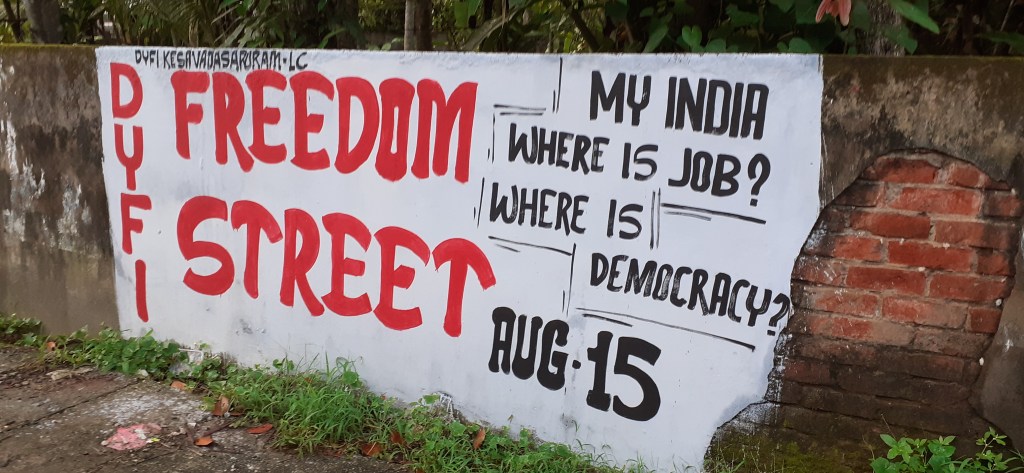 DYFI KESAVADASAPURAM.LC
DYFI
FREEDOM
STREET
MY INDIA
WHERE IS JOB?
WHERE IS
DEMOCRACY?
AUG.15